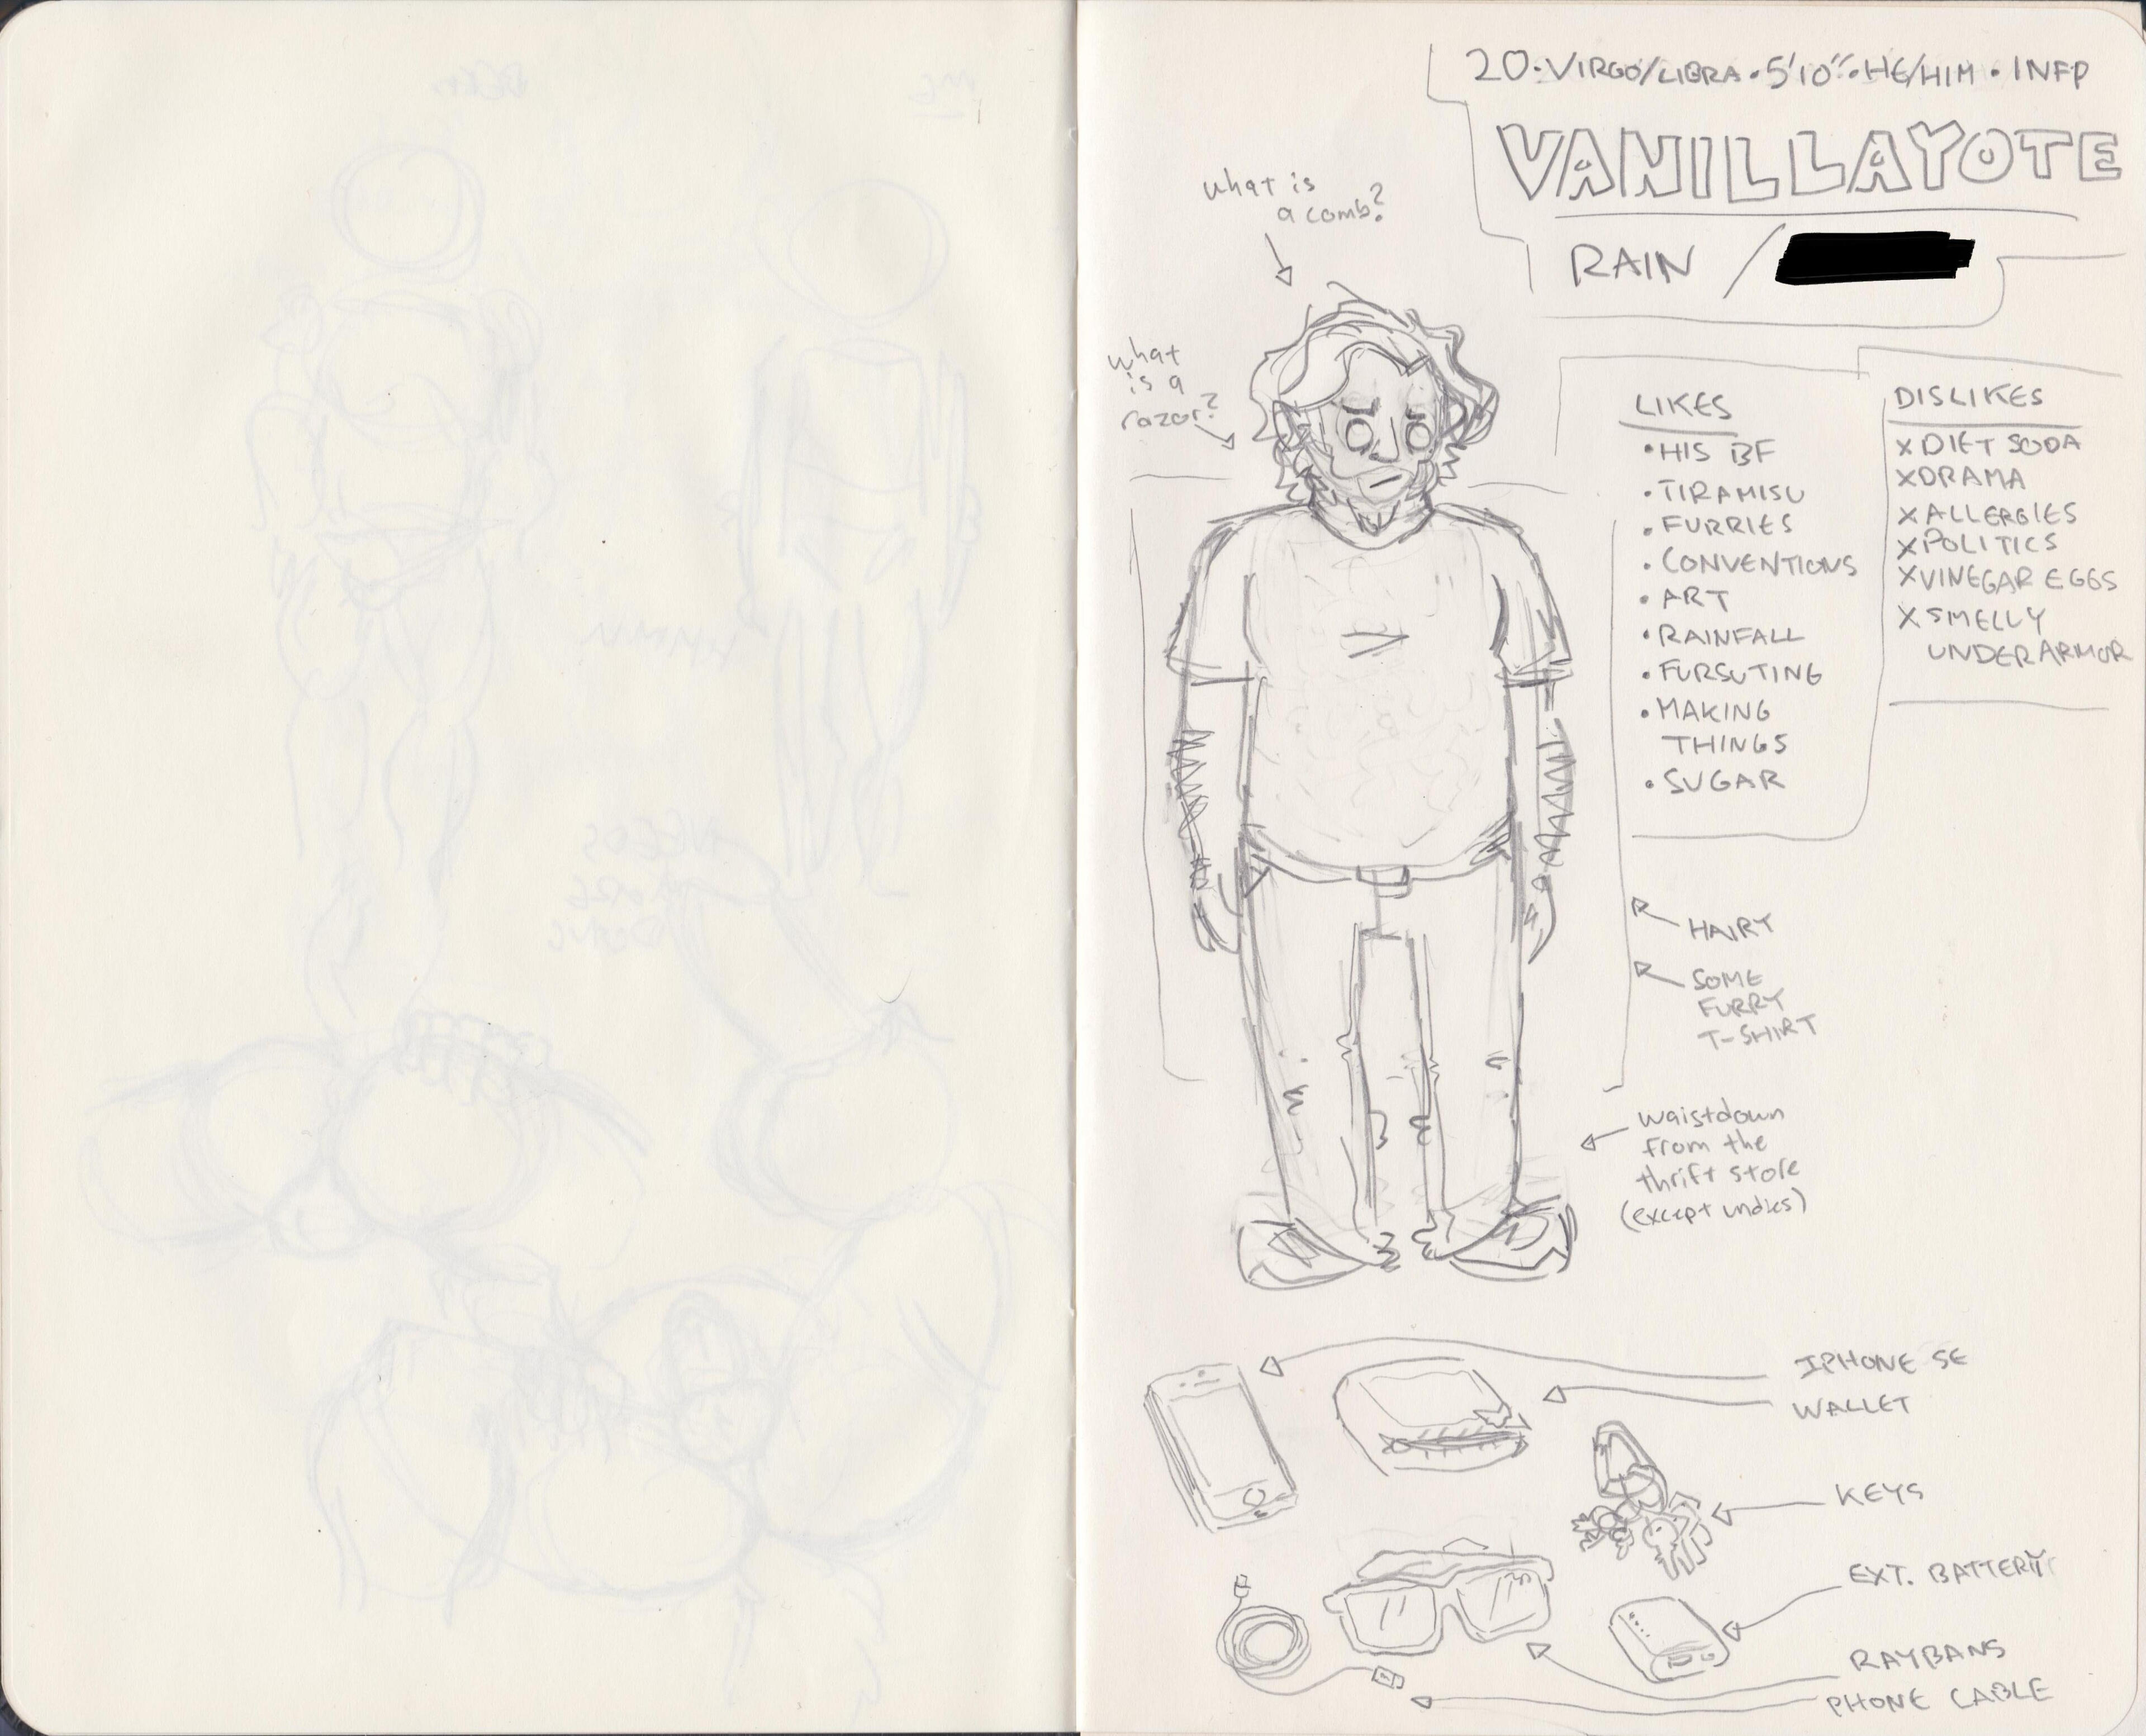 20·VIRGO/LIBRA·5'10"·HE/HIM·INFP
VANILLAYOTE
RAIN /
what is
a comb?
what
is a
razor?
LIKES
·HIS BF
·TIRAMISU
·FURRIES
·CONVENTIONS
·ART
·RAINFALL
·FURSUTING
·MAKING
THINGS
·SUGAR
DISLIKES
X DIET SODA
X DRAMA
X ALLERGIES
X POLITICS
X VINEGAR EGGS
X SMELLY
UNDERARMOR
HAIRY
SOME
FURRY
T-SHIRT
waistdown
from the
thrift store
(except undies)
IPHONE SE
WALLET
KEYS
EXT. BATTERY
RAYBANS
PHONE CABLE